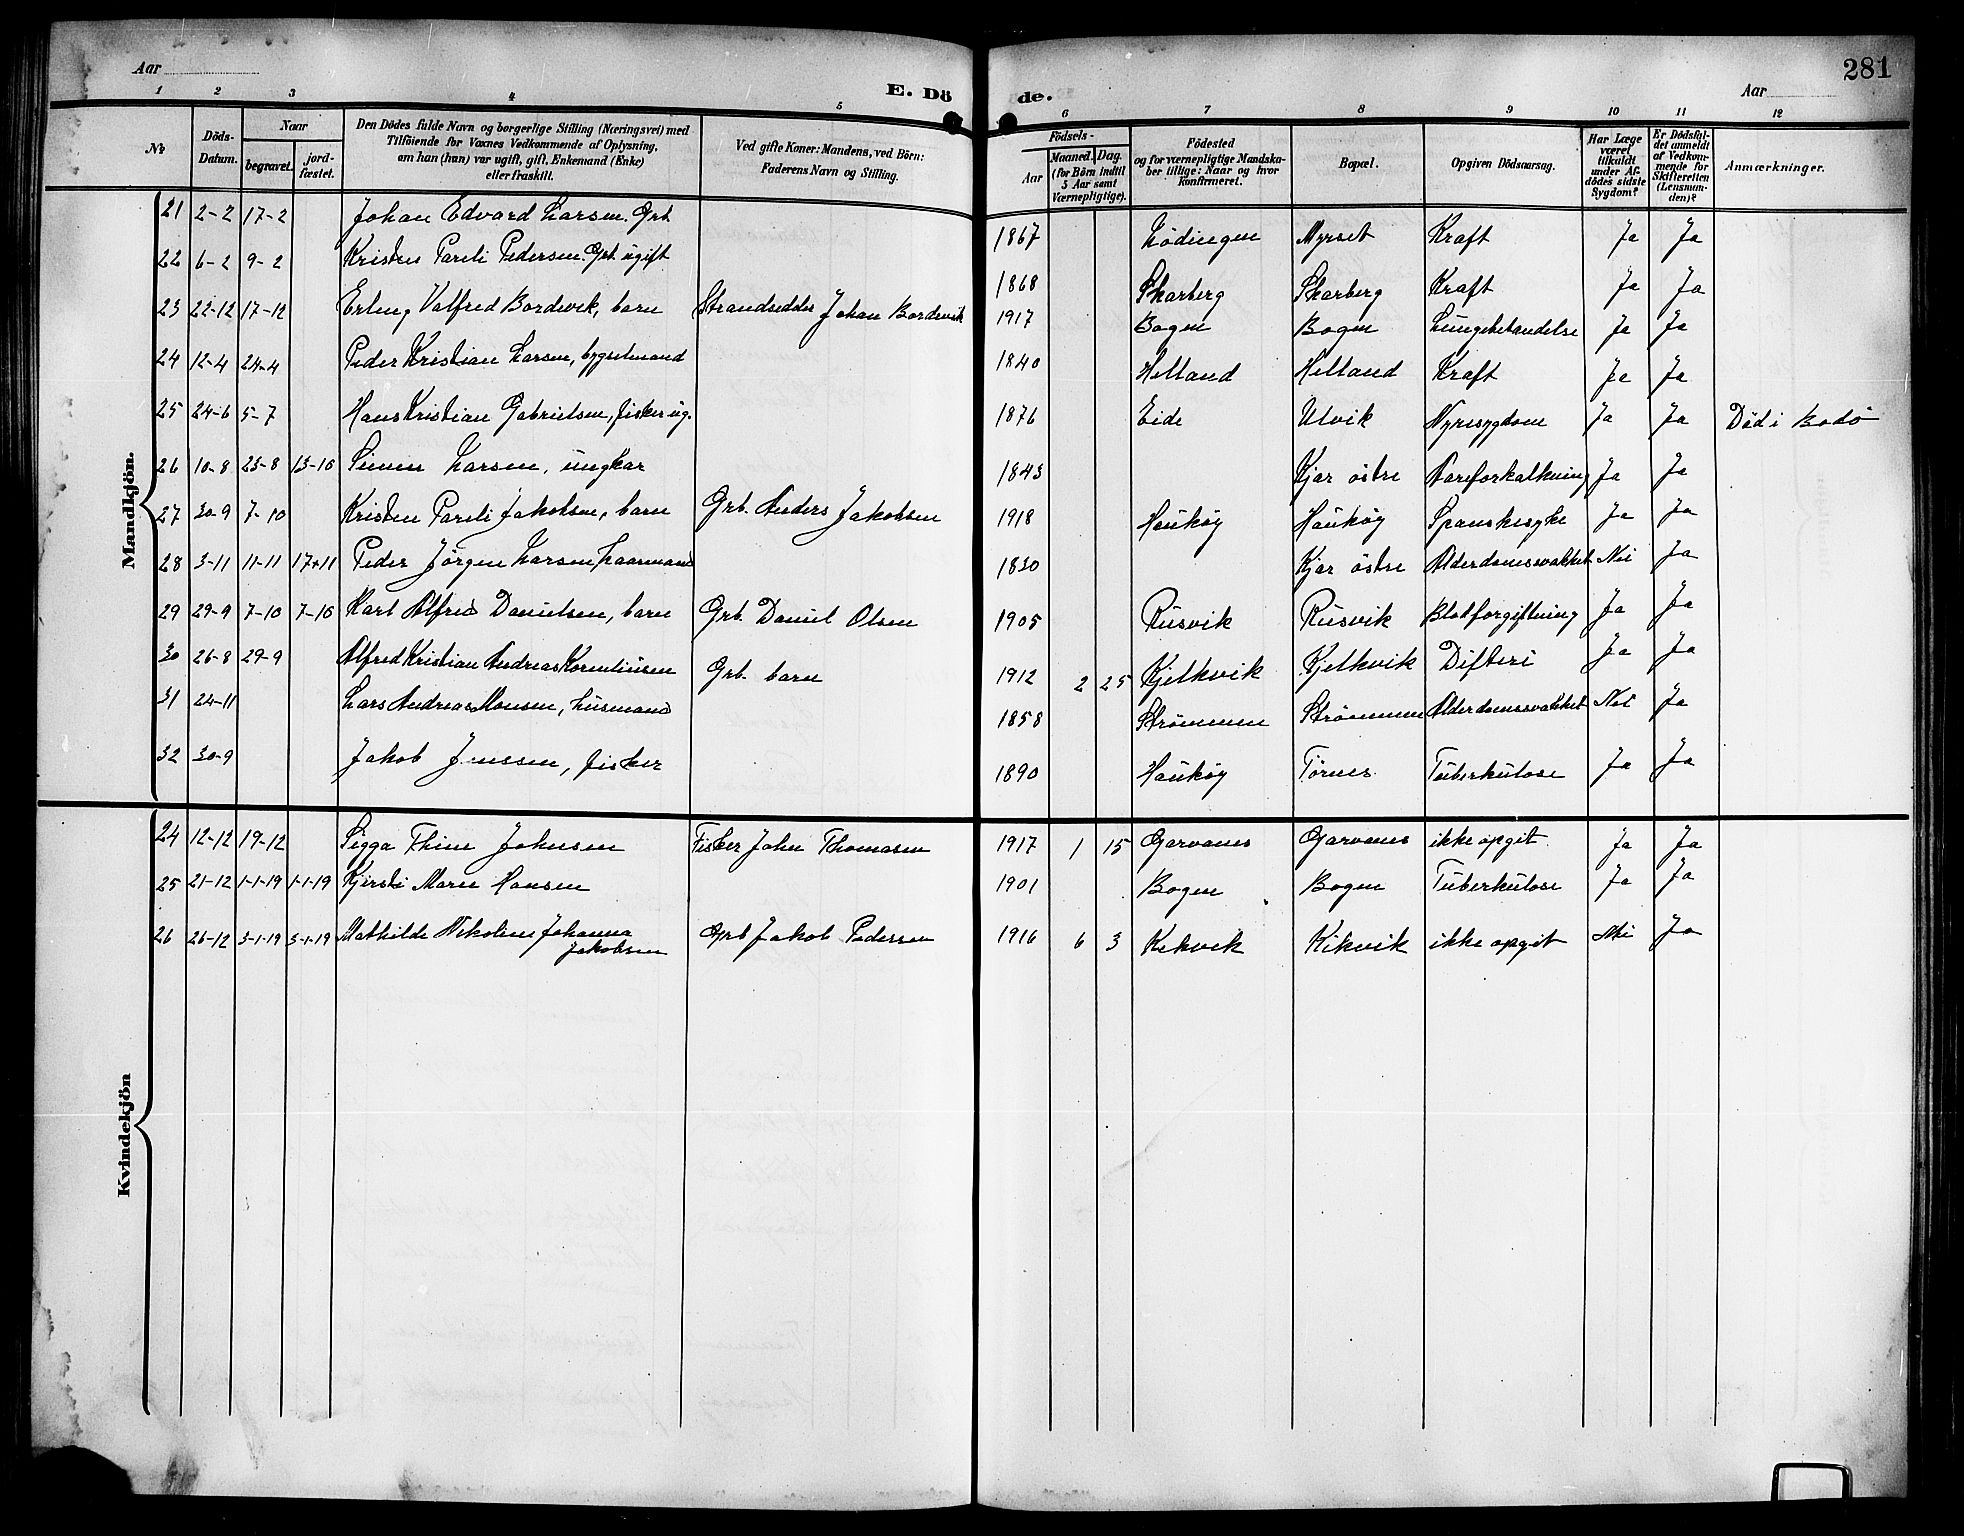 Aar
E. Dö
de.
Aar
281
1 2 3 4 5 6 7 8 9 10 11 12
№
Döds-Datum.
Naar
begravet.
jord-fæstet.
Den Dödes fulde Navn og borgerlige Stilling (Næringsvei) med
Tilföiende for Voxnes Vedkommende af Oplysning,
om han (hun) var ugift, gift, Enkemand (Enke)
eller fraskilt.
Ved gifte Koner: Mandens, ved Börn:
Faderens Navn og Stilling.
Födsels-
Aar
Maaned. Dag.
(for Börn indtil
5 Aar samt
Værnepligtige).
Födested
og for værnepligtige Mandska-
ber tillige: Naar og hvor
konfirmeret.
Bopæl.
Opgiven Dödsaarsag.
Har Læge
været
tilkaldt
under Af-
dödes sidste
Sygdom?
Er Dödsfal-
det anmeldt
af Vedkom-
mende for
Skifteretten
(Lensman-
den)?
Anmærkninger.
Mandkjön.
21 2-2 17-2 Johan Edvard Larsen. Grb. 1867 Lødingen Myrset Kraft Ja Ja
22 6-2 9-2 Kristen Pareli Pedersen Grb. ugift 1868 Skarberg Skarberg Kraft Ja Ja
23 22-12 17-12 Erling Valfred Bordevik, barn Strandsidder Johan Bordevik 1917 Bogen Bogen Lungebetændelse Ja Ja
24 12-4 24-4 Peder Kristian Larsen, bygselmand 1840 Helland Helland Kraft Ja Ja
25 24-6 5-7 Hans Kristian Gabrielsen, fisker ug. 1876 Eide Ulvik Nyresygdom Ja Ja Död i Bodö
26 10-8 23-8 13-10 Simen Larsen, ungkar 1843 Kjær östre Aareforkalkning Ja Ja
27 30-9 7-10 Kristen Pareli Jakobsen, barn Grb. Anders Jakobsen 1918 Haukøy Haukøy Spanskesyke Ja Ja
28 3-11 11-11 17-11 Peder Jørgen Larsen Kaarmand 1830 Kjær östre Alderdomssvakhet Nei Ja
29 29-9 7-10 7-10 Karl Alfred Danielsen, barn Grb. Daniel Olsen 1905 Rusvik Rusvik Blodforgiftning Ja Ja
30 26-8 29-9 Alfred Kristian Andreas Korneliusen Grb. barn 1912 2 25 Kjelkvik Kjelkvik Difteri Ja Ja
31 24-11 Lars Andreas Monsen, Husmand 1858 Strømmen Strømmen Alderdomssvakhet Nei Ja
32 30-9 Jakob Jenssen, fisker 1890 Haukøy Tørnes Tuberkulose Ja Ja
Kvindekjön
24 12-12 19-12 Sigga Thine Johnsen Fisker John Thomasen 1917 1 15 Garvanes Garvanes ikke opgit Ja Ja
25 21-12 1-1-19 1-1-19 Kjersti Marie Hansen 1901 Bogen Bogen Tuberkulose Ja Ja
26 26-12 3-1-19 3-1-19 Mathilde Nikoline Johanna
Jakobsen Grb Jakob Pedersen 1916 6 3 Kikvik Kikvik ikke opgit Nei Ja